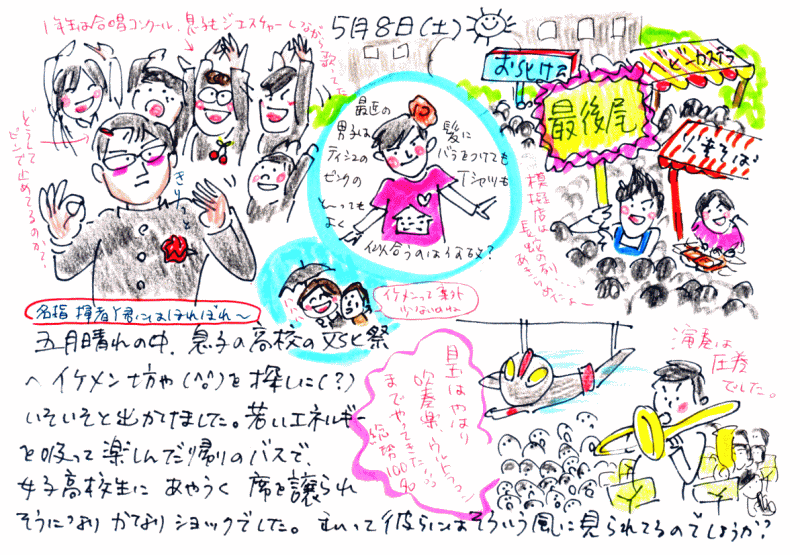 5月8日(土)
1年生は合唱コンクール、息子もジェスチャーしながら歌ってた
どうして
ピンで止めてるのか?
きりっと
名指揮者Y君にほれぼれ〜
最近の
男子は
ティシュの
ピンクの
と〜っても
よく
髪に
バラをつけても
Tシャツも
似合うのはなぜ?
イケメンって案外
少ないのね
おばけ屋
最後尾
ベビーカステラ
やきそば
模擬店は
長蛇の列…
あきらめました〜
五月晴れの中、息子の高校の文化祭
へイケメン坊や(^^)を探しに(?)
いそいそと出かけました。若いエネルギー
を吸って楽しんだ帰りのバスで、
女子高校生に あやうく 席を譲られ
そうになり かなり ショックでした。
彼らにはそういう風に見られてるのでしょうか?
目玉はやはり
吹奏楽、ウルトラマン
までやってきた!
総勢100名
演奏は
圧巻
でした。